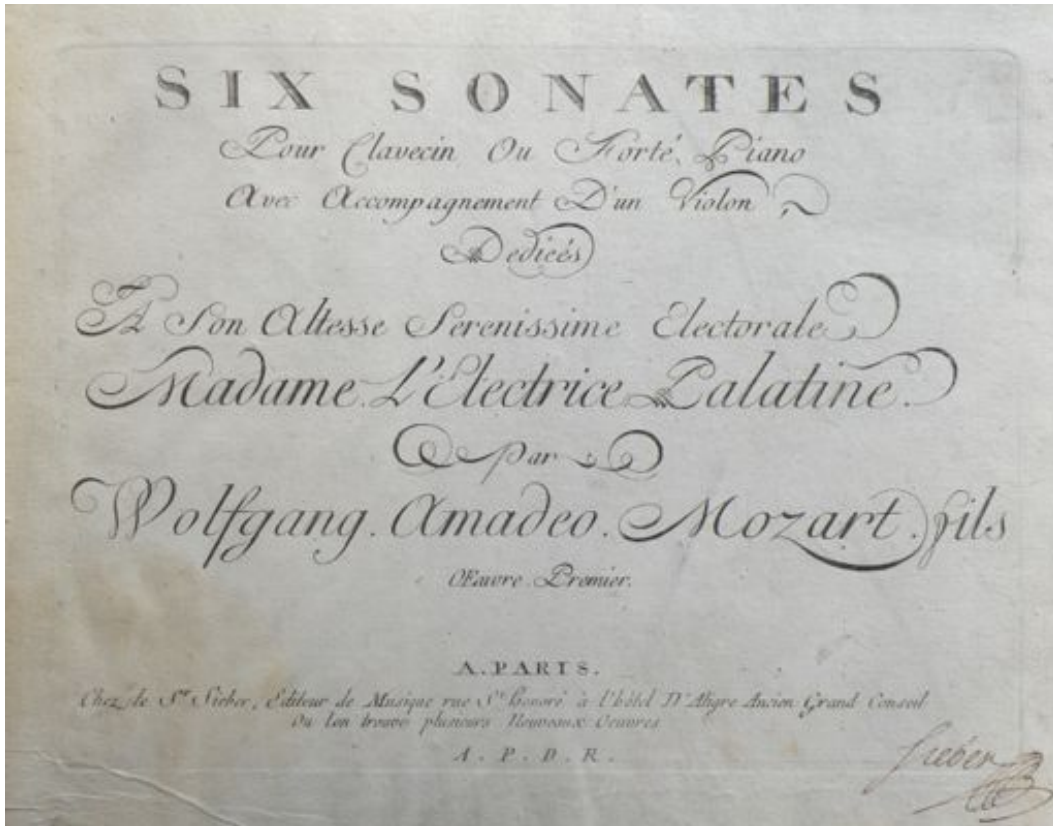 SIX SONATES
Pour Clavecin Ou Forté Piano
Avec Accompagnement D'un Violon
Dediées
A Son Altesse Serenissime Electorale
Madame L'Electrice Palatine.
par
Wolfgang. Amadeo. Mozart. fils
Œuvre Premier.
A. PARIS.
Chez le Sr. Sieber, Editeur de Musique rue St. honoré à l'hôtel D'Aligre Ancien Grand Conseil
Ou l'on trouve plusieurs Nouveaux Oeuvres
A. P. D. R.
Sieber